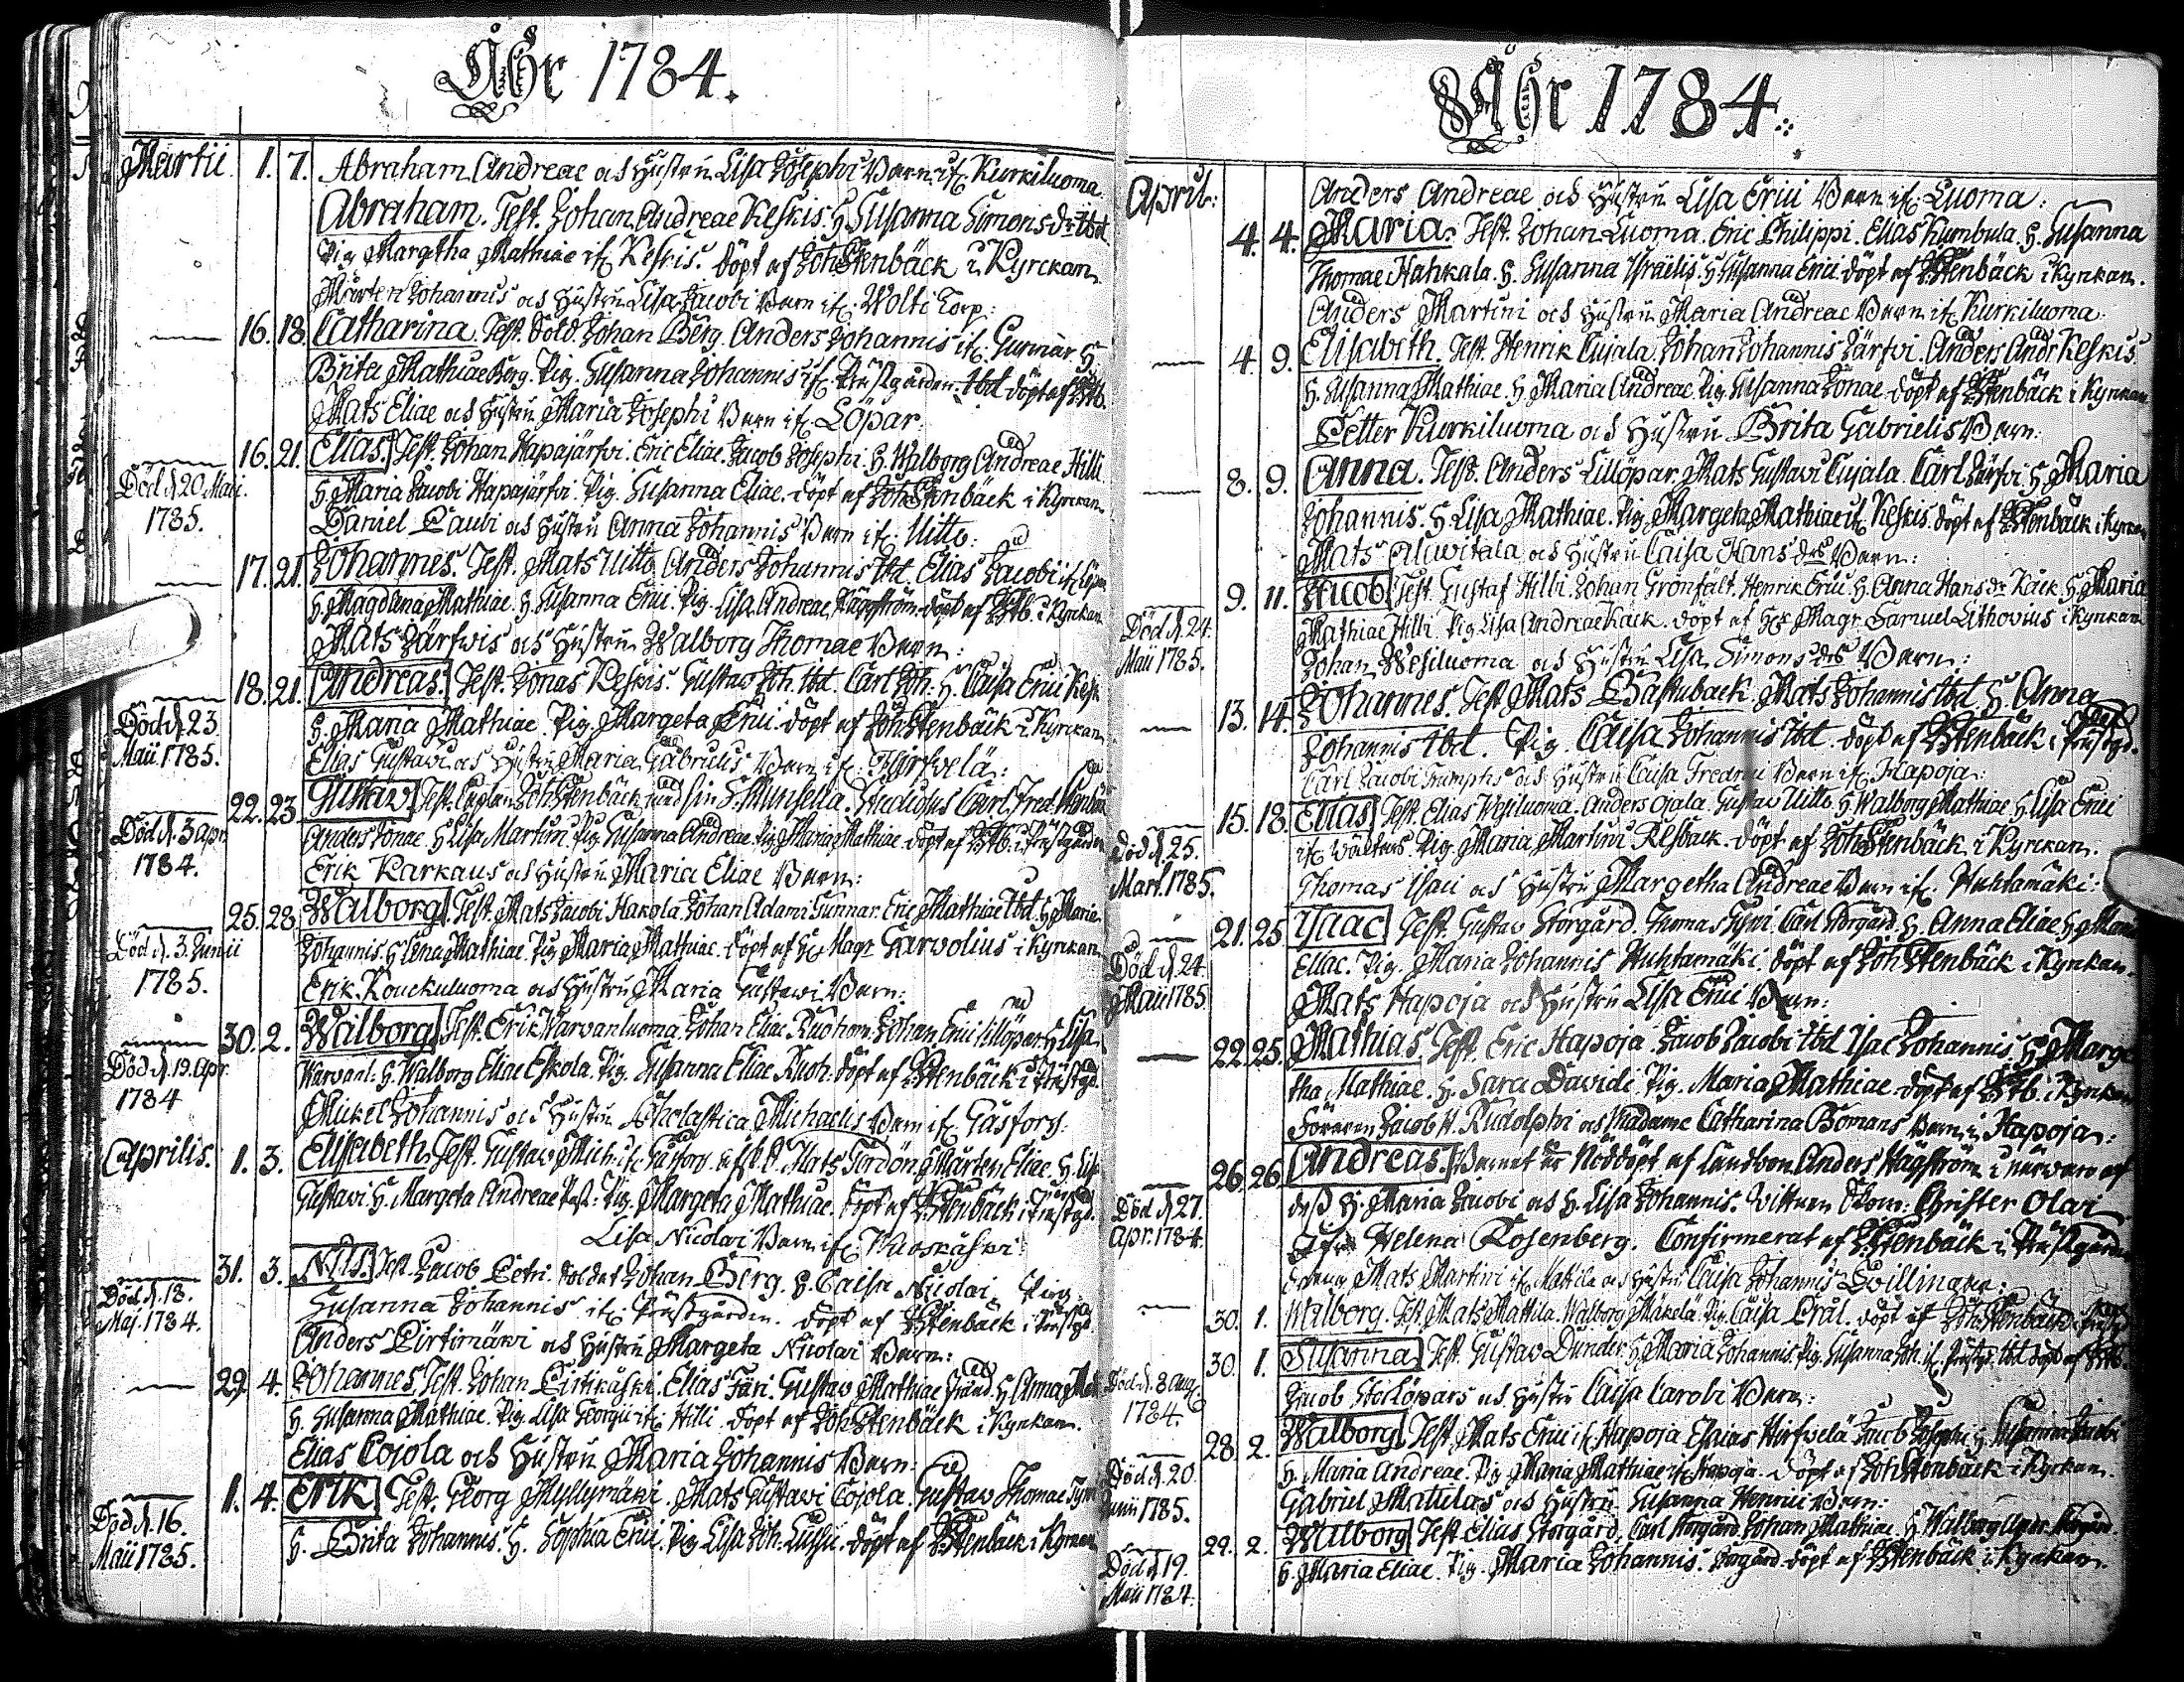 Åhr 1784.
Martii. 1. 7. Abraham Andreae och Hustru Lisa Josephi Barn if. Kurkiluoma
Abraham. Test. Johan Andreae Keskis. H. Susanna Simons dr ibd.
Pig. Margtha Mathiae if. Keskis. döpt af Joh Stenbäck i Kyrckan
Mårten Johannis och Hustru Lisa Jacobi Barn if. Wolti Torp:
16. 18. Catharina. Test. Sold. Johan Berg. Anders Johannis if. Gunnar. H.
Brita Mathiae Berg. Pig. Susanna Johannis if. Prästgården ibd döpt af Stb.
Mats Eliae och Hustru Maria Josephi Barn if. Löpar.
16. 21. Elias. Test. Johan Hapajärfvi. Eric Eliae. Jacob Josephi. H. Walborg Andreae Hilli
Död d. 20 Maii. H. Maria Jacobi Hapajärfvi. Pig. Susanna Eliae. döpt af Joh Stenbäck i Kyrckan
1785. Daniel Caubi och Hustru Anna Johannis Barn if. Uitto:
17. 21. Johannes. Test. Mats Uitto, Anders Johannis ibd. Elias Jacobi
H. Magdlena Mathiae. H. Susanna Erici. Pig. Lisa Andreae Häggström. döpt af Stb. i Kyrckan
Mats Järfwis och Hustru Walborg Thomae Barn:
18. 21. Andreas. Test. Jonas Keskis. Gustaw Joh. ibd. Carl Joh: H. Caisa Erici Kesk
Död d. 23 H. Maria Mathiae. Pig. Margeta Erici. döpt af Joh Stenbäck i Kyrckan
Maii 1785. Elias Gustawi och Hustru Maria Gabrielis Barn if. Hirfvelä:
22. 23. Gustaw. Test. Johan Stenbäck med sin Studiosus Carl Fred.
Död d. 3 apr. Anders Jonae. H. Lisa Martini. Pig. Susanna Andreae. Pig. Maria Mathiae. döpt af Stb. i Prästgården
1784. Erik Karkaus och Hustru Maria Eliae Barn:
25. 28. Walborg. Test. Mats Jacobi Hakola. Johan Adami Gunnar. Eric Mathiae ibd. H. Maria
Död d. 3. Junii Johannis. H. Lena Mathiae. Pig. Maria Mathiae. döpt af Hr Magr Garvolius i Kyrckan
1785. Erik Kouckuluoma och Hustru Maria Gustawi Barn:
30. 2. Walborg. Test. Erik Varvanluoma. Johan Eliae. Johan Erici lillöpar. H. Lisa
Död d. 19. Apr. H. Walborg Eliae Eskola. Pig. Susanna Eliae. döpt af Stenbäck i Prästgd.
1784 Mickel Johannis och Hustru Scholastica Michaelis Barn if. Gåsfors.
Aprilis. 1. 3. Elisabeth. Test. Gustaw Mich: if. Gåsfors. Mats Fordön. Mårten Eliae. H. Lisa
Gustavi. H. Margeta Andreae. Pig. Margeta Mathiae. döpt af Stenbäck i Prästgd.
Lisa Nicolai Barn if.
31. 3. Nils. Test. Jacob Petri. Soldat Johan Berg. H. Caisa Nicolai. Pig:
Död d. 18. Susanna Johannis if. Prästgården. döpt af Stenbäck i Prästgd.
Maj. 1784. Anders Pirtimäki och Hustru Margeta Nicolai Barn:
29. 4. Johannes. Test. Johan Pirtikäski. Elias Färi. Gustaw Mathiae Strand. H. Anna
H. Susanna Mathiae. Pig. Lisa Georgii if. Hilli. döpt af Joh Stenbäck i Kyrckan.
Elias Cojola och Hustru Maria Johannis Barn:
1. 4. Erik. Test. Georg Myllymäki. Mats Gustawi Cojola. Gustaw Thomae
Död d. 16. H. Brita Johannis. H. Sophia Erici. Pig. Lisa Joh. döpt af Stenbäck i Kyrckan
Maii 1785.
Åhr 1784.
April: Anders Andreae och Hustru Lisa Erici Barn if. Luoma:
4. 4. Maria. Test. Johan Luoma. Eric Philippi. Elias Kumbula. H. Susanna
Thomae Hahkala. H. Susanna Israëlis. H. Susanna Erici döpt af Stenbäck i Kyrckan.
Anders Martini och Hustru Maria Andreae Barn if. Kurkiluoma.
4. 9. Elisabeth. Test. Henrik Cujala. Johan Johannis Järfvi. Anders Andr. Keskis
H. Susanna Mathiae. H. Maria Andreae. Pig. Susanna Jonae. döpt af Stenbäck i Kyrckan
Petter Kurkiluoma och Hustru Brita Gabrielis Barn:
8. 9. Anna. Test. Anders Lillöpar. Mats Gustavi Cujala. Carl Järfvi. H. Maria
Johannis. H. Lisa Mathiae. Pig. Margeta Mathiae if. Keskis. döpt af Stenbäck i Kyrckan
Mats Alawitala och Hustru Caisa Hans dr Barn:
9. 11. Jacob. Test. Gustaf Hilli. Johan Grönfält. Henrik Erici. H. Anna Hans dr Kack. H. Maria
Död d. 24. Mathiae Hilli. Pig. Lisa Andreae Kack. döpt af Hr Magr. Samuel Lithovius i Kyrckan
Maii 1785. Johan Wesiluoma och Hustru Lisa Simons dr Barn:
13. 14. Johannes. Test. Mats Backuback. Mats Johannis ibd. H. Anna
Johannis ibd. Pig. Caisa Johannis ibd. döpt af Stenbäck i Prästgd.
Carl Jacobi Trumpfs och Hustru Caisa Fredrici Barn if. Hapoja:
15. 18. Elias. Test. Elias Wesiluoma. Anders Ojala. Gustav Uitto. H. Walborg Mathiae. H. Lisa Erici
Död d. 25. if. Wälters. Pig. Maria Martini Resback. döpt af Joh Stenbäck i Kyrckan.
Mart. 1785. Thomas Isaci och Hustru Margetha Andreae Barn if. Huhtamäki:
21. 25. Isaac. Test. Gustav Storgård. Thomas Tyni. Carl Storgård. H. Anna Eliae. H. Maria
Död d. 24. Eliae. Pig. Maria Johannis Huhtamäki. döpt af Joh Stenbäck i Kyrckan.
Maii 1785 Mats Hapoja och Hustru Lisa Erici Barn:
22. 25. Mathias. Test. Eric Hapoja. Jacob Jacobi ibd. Isac Johannis. H. Marge
tha Mathiae. H. Sara Davidi. Pig. Maria Mathiae. döpt af Stb. i Kyrckan
Föraren Jacob H. Rudolphi och Madame Catharina Bomans Barn i Hapoja:
26. 26. Andreas. Barnet är Nöddöpt af Landbon Anders Hägström i närvaro af
Död d. 27. dess H. Maria Jacobi och H. Lisa Johannis. Vittnen Skom: Christer Olai
Apr. 1784. Jfru Helena Rosenberg. Confirmerat af Stenbäck i Prästgården
Dräng Mats Martini if. Mattila och Hustru Caisa Johannis Tvillingar:
30. 1. Walborg. Test. Mats Mattila. Walborg Mäkelä. Pig. Caisa Prål. döpt af Joh Stenbäck
30. 1. Susanna. Test. Gustav Dunder. H. Maria Johannis. Pig. Susanna Joh. if. Prästgd. ibd döpt af Stb.
Död d. 8 Aug. Jacob Storlöpars och Hustru Caisa Jacobi Barn:
1784.
28. 2. Walborg. Test. Mats Erici if. Hapoja. Esaias Hirfvelä. Jacob Josephi. H. Susanna
Död d. 20 H. Maria Andreae. Pig. Maria Mathiae if. Hapoja. döpt af Joh Stenbäck i Kyrckan.
Junii 1785. Gabriel Mattilas och Hustru Susanna Henrici Barn:
29. 2. Walborg. Test. Elias Storgård. Carl Storgård. Johan Mathiae. H. Walborg
Död d. 19. H. Maria Eliae. Pig. Maria Johannis. Storgård. döpt af Stenbäck i Kyrckan.
Maii 1784.